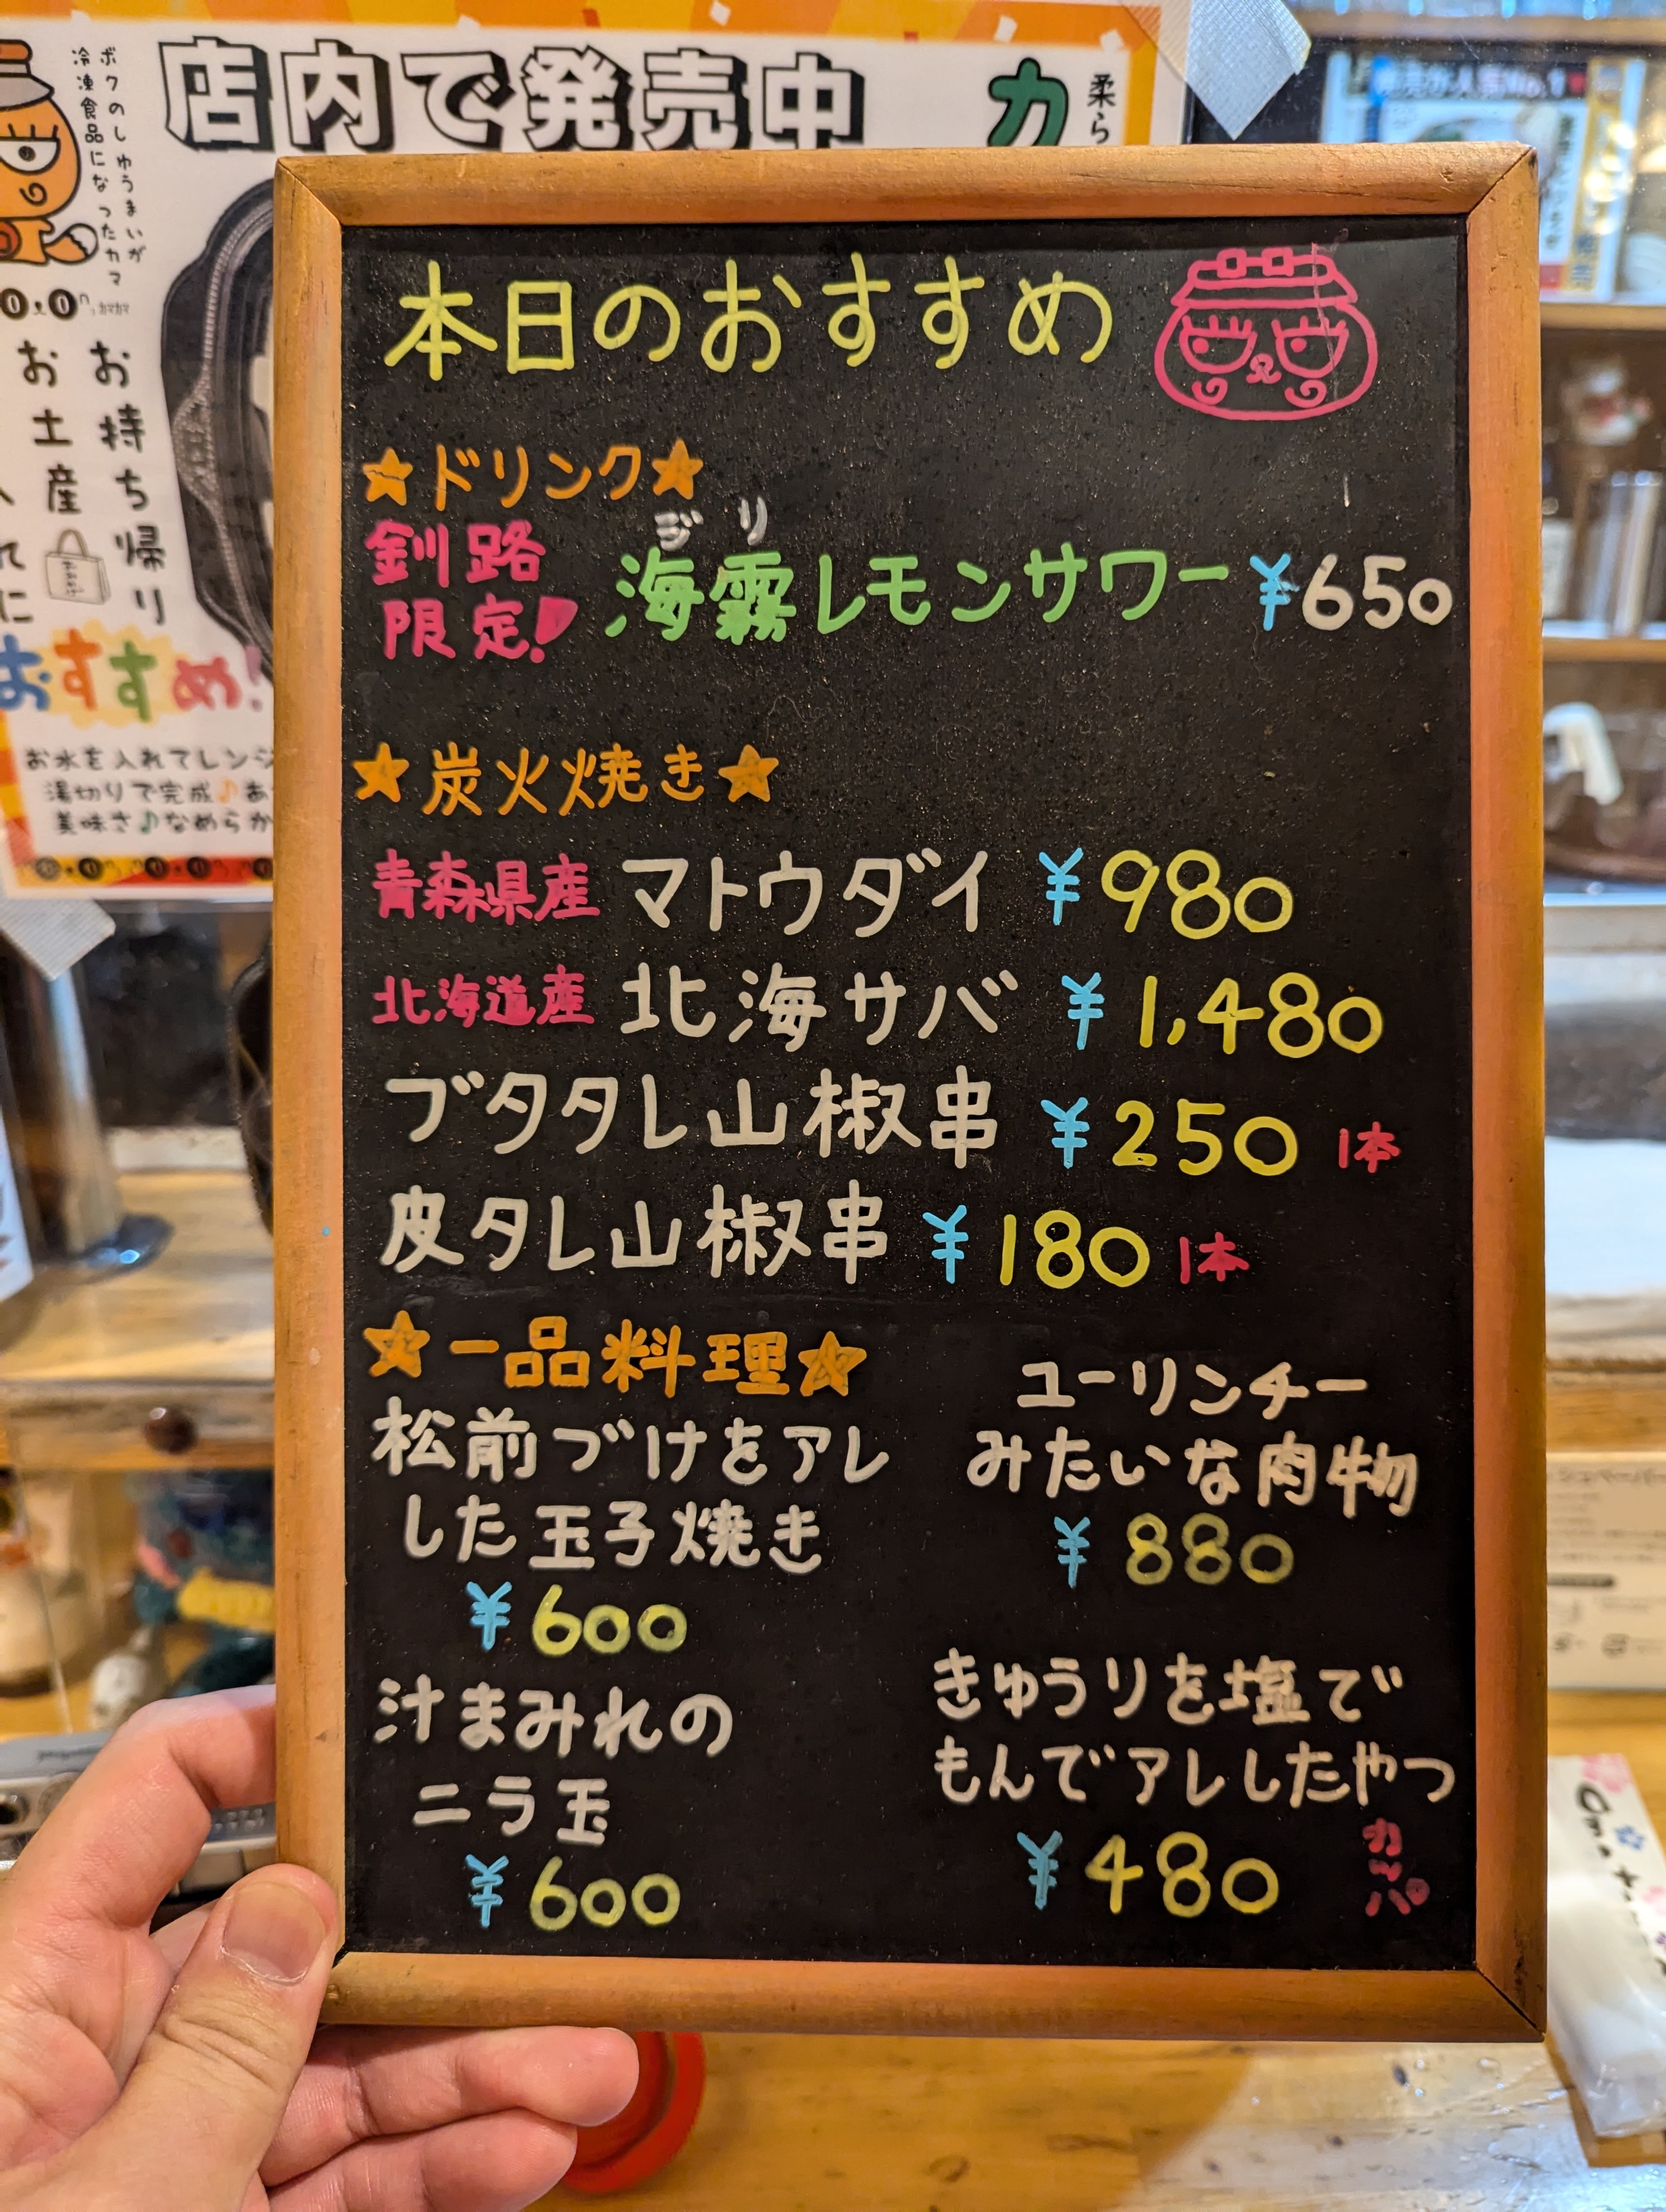 店内で発売中
ボクのしゅうまいが
冷凍食品になったカマ
お持ち帰り
お土産
おすすめ!
お水を入れてレンジ
湯切りで完成♪あ
美味さ♪なめらか
本日のおすすめ
★ドリンク★
釧路限定! 海霧レモンサワー ¥650
ジリ
★炭火焼き★
青森県産 マトウダイ ¥980
北海道産 北海サバ ¥1,480
ブタタレ山椒串 ¥250 1本
皮タレ山椒串 ¥180 1本
★一品料理★
松前づけをアレ
した玉子焼き
¥600
汁まみれの
ニラ玉
¥600
ユーリンチー
みたいな肉物
¥880
きゅうりを塩で
もんでアレしたやつ
¥480
カーパ